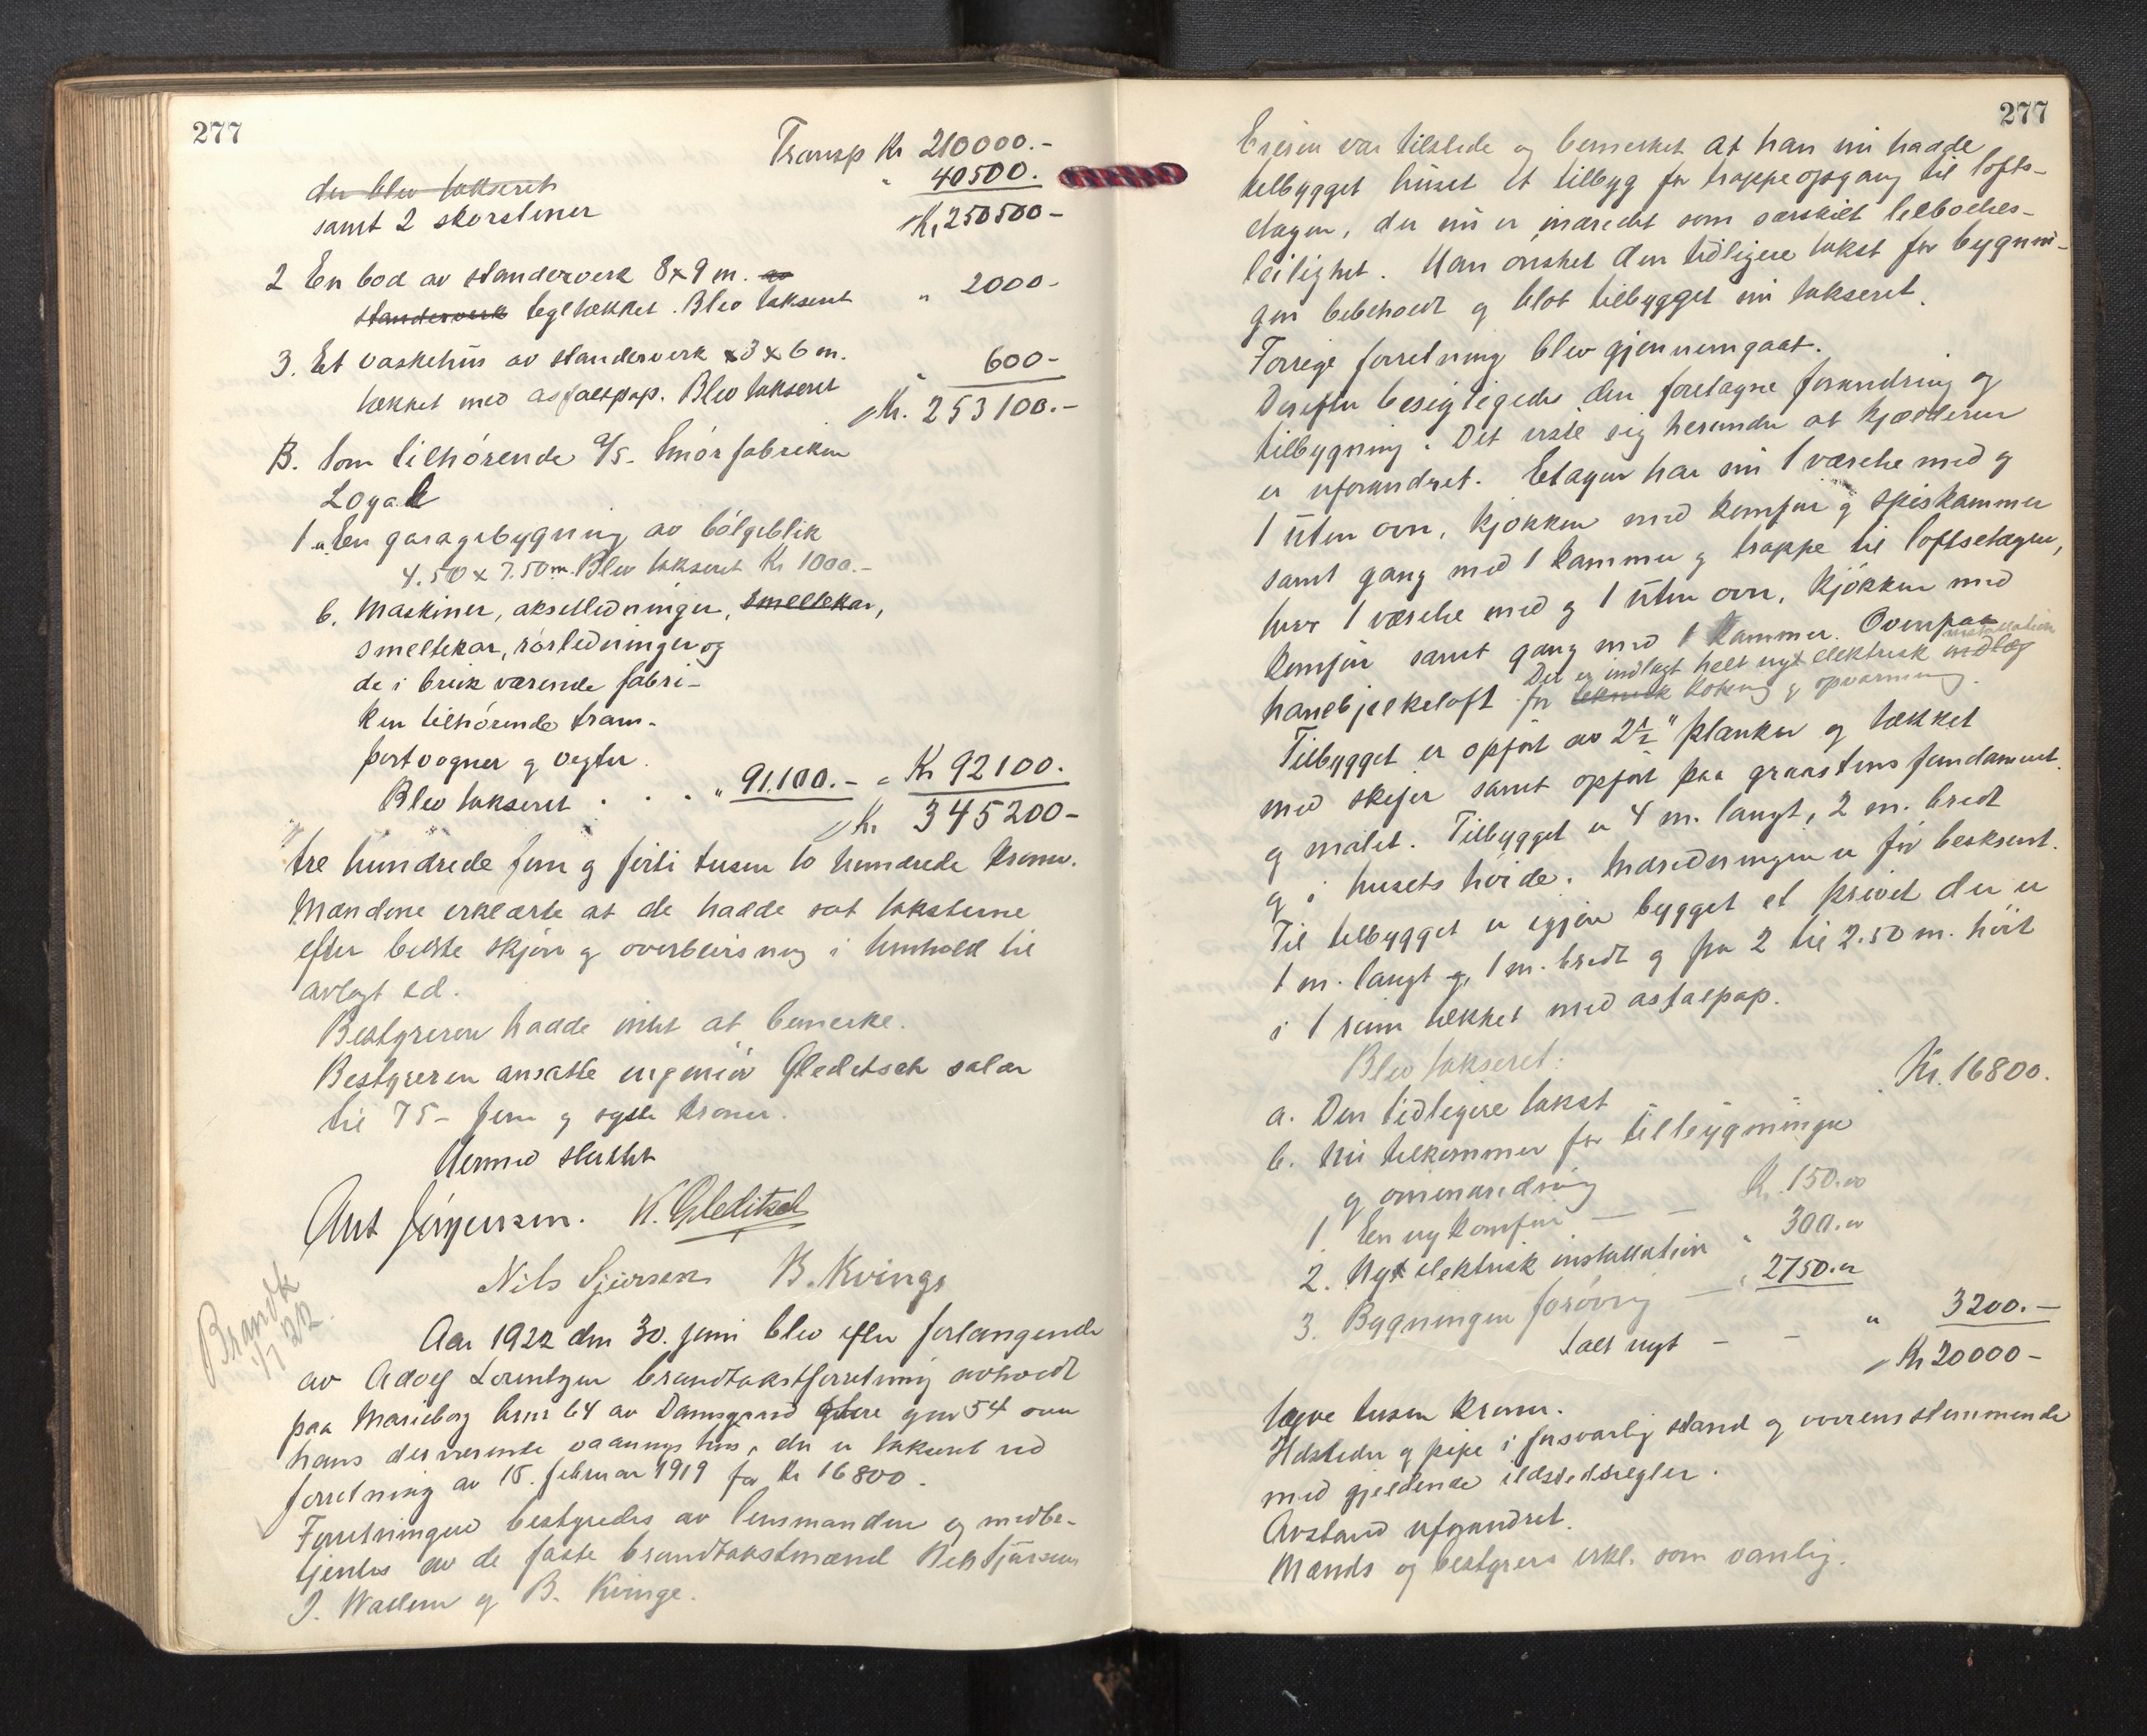 277
Transp Kr 210000.-
der blev takseret " 40500.
samt 2 skorstener Kr. 250500-
2 En bod av standerverk 8x9 m. av
standerverk tegltækket. Blev takseret " 2000-
3. Et vaskehus av standerverk x3x6 m.
tækket med asfaltpap. Blev takseret " 600-
Kr. 253100.-
B. Som tilhörende A/S. Smörfabriken
Loyal
1 a. En garagebygning av bölgeblik
4.50 x 7.50 m. Blev takseret Kr 1000.-
b. Maskiner, akselledninger, smeltekar,
smeltekar, rörledninger og
de i bruk værende fabri-
ken tilhörende trans-
portvogner og vegter.
Blev takseret . . . " 91.100.- " Kr 92100.
Kr 345200-
tre hundrede fem og firti tusen to hundrede kroner.
Mændene erklærte at de hadde sat taksterne
efter bedste skjön og overbevisning i henhold til
avlagt ed.
Bestyreren hadde intet at bemerke.
Bestyreren ansatte ingeniör Gleditsch salær
til 75- fem og sytti kroner.
Hermed sluttet
Ant Jörgensen. K. Gleditsch
Nils Tjersen B. Kvinge
Brandt
1/7 22.
Aar 1922 den 30. juni blev efter forlangende
av Adolf Lorentzen brandtakstforretning avholdt
paa Marieborg brnr 64 av Damsgaard gnr 54 over
hans derværende vaaningshus, der er takseret ved
forretning av 15. februar 1919 for kr 16800.
Forretningen bestyredes av lensmanden og medbe-
tjentes av de faste brandtakstmænd Nils Tjersen
J. Wallem og B. Kvinge.
277
Eieren var tilstede og bemerket at han nu hadde
tilbygget huset et tilbyg for trappeopgang til lofts-
etagen, der nu er indredet som særskilt beboelses-
leilighet. Han önsket den tidligere takst for bygnin-
gen beholdt og blot tilbygget nu takseret.
Forrige forretning blev gjennemgaat.
Derefter besigtigedes den foretagne forandring og
tilbygning. Det viste sig herunder at kjælderen
er uforandret. Etagen har nu 1 værelse med og
1 uten ovn, kjökken med komfur og spiskammer
samt gang med 1 kammer og trappe til loftsetagen,
hvor 1 værelse med og 1 uten ovn, kjökken med
komfur samt gang med 1 kammer. Ovenpaa
installation
Det er indlagt helt nyt elektrisk indlæg
hanebjelkeloft for teknisk kokning og opvarmning.
Tilbygget er opfört av 2 1/2" planker og tækket
med skifer samt opfört paa graastens fundament
og malet. Tilbygget er 4 m. langt, 2 m. bredt
og i husets höide. Indredningen er för beskrevet.
Til tilbygget er igjen bygget et privet der er
1 m. langt og 1 m. bredt og fra 2 til 2.50 m. höit
i 1 rum tækket med asfaltpap.
Blev takseret:
a. Den tidligere takst Kr. 16800.
b. Nu tilkommer for tilbygningen
og omindredning
1 En ny komfur — — Kr. 150.00
2. Nyt elektrisk installation " 300.00
3. Bygningen forövrig — " 2750.00
Sael nyt - - " 3200.-
Kr 20000-
tyve tusen kroner.
Ildsteder og pipe i forsvarlig stand og overensstemmende
med gjeldende ildstedsregler.
Avstand uforandret.
Mænds og bestyrers erkl. som vanlig.